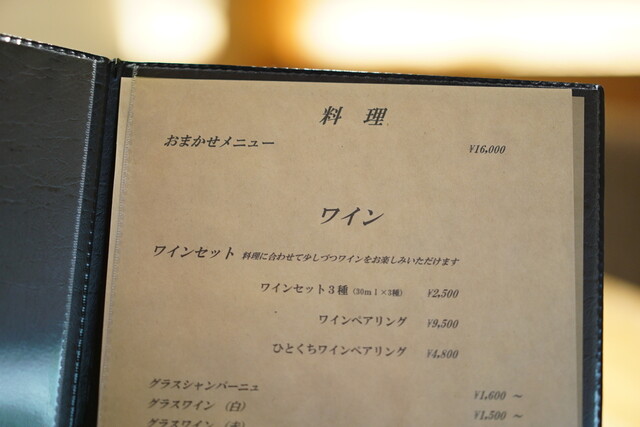 料 理
おまかせメニュー ¥16,000
ワイン
ワインセット 料理に合わせて少しづつワインをお楽しみいただけます
ワインセット3種（30ml×3種） ¥2,500
ワインペアリング ¥9,500
ひとくちワインペアリング ¥4,800
グラスシャンパーニュ ¥1,600 ～
グラスワイン （白） ¥1,500 ～
グラスワイン （赤）